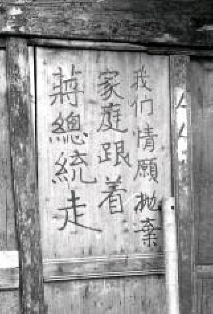 我们情願抛棄
家庭跟着
蔣總統走